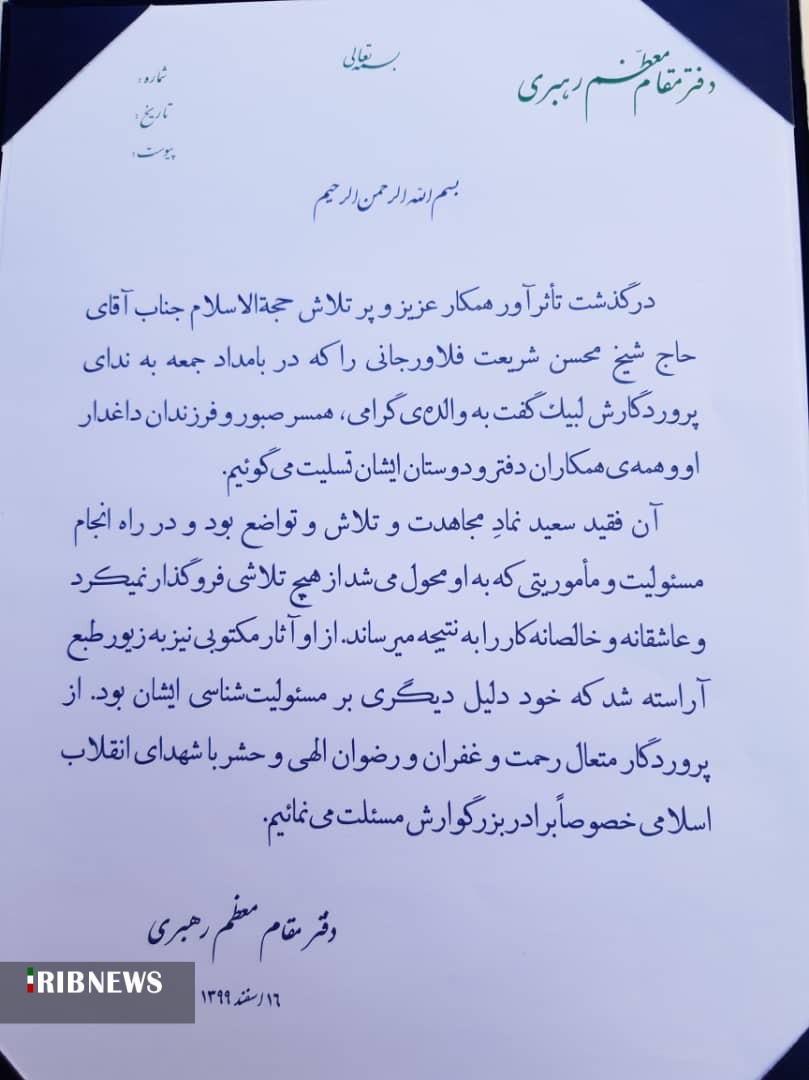 دفتر مقام معظّم رهبری
بسمه تعالی
شماره :
تاریخ :
پیوست :
بسم الله الرحمن الرحیم
درگذشت تأثرآور همکار عزیز و پر تلاش حجةالاسلام جناب آقای
حاج شیخ محسن شریعت فلاورجانی را که در بامداد جمعه به ندای
پروردگارش لبیک گفت به والده‌ی گرامی، همسر صبور و فرزندان داغدار
او و همه‌ی همکاران دفتر و دوستان ایشان تسلیت می‌گوئیم.
آن فقید سعید نمادِ مجاهدت و تلاش و تواضع بود و در راه انجام
مسئولیت و مأموریتی که به او محول می‌شد از هیچ تلاشی فروگذار نمیکرد
و عاشقانه و خالصانه کار را به نتیجه میرساند. از او آثار مکتوبی نیز به زیور طبع
آراسته شد که خود دلیل دیگری بر مسئولیت‌شناسی ایشان بود. از
پروردگار متعال رحمت و غفران و رضوان الهی و حشر با شهدای انقلاب
اسلامی خصوصاً برادر بزرگوارش مسئلت می‌نمائیم.
دفتر مقام معظم رهبری
۱۶ / اسفند ۱۳۹۹
IRIBNEWS